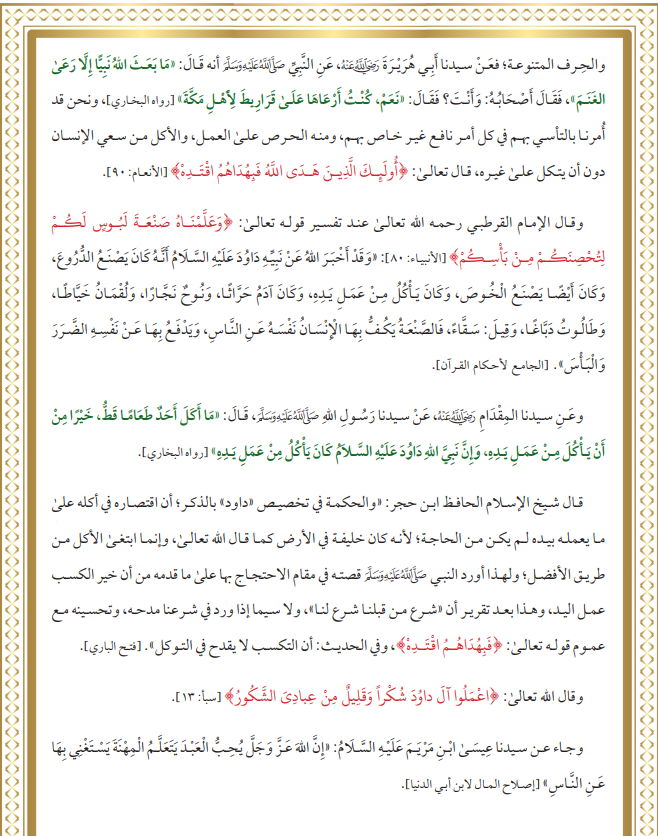 والحِرف المتنوعة؛ فعَنْ سيدنا أَبِي هُرَيْرَةَ رَضِيَ اللَّهُ عَنْهُ، عَنِ النَّبِيِّ صَلَّى اللَّهُ عَلَيْهِ وَسَلَّمَ أنه قَالَ: «مَا بَعَثَ اللهُ نَبِيًّا إِلَّا رَعَىٰ
الغَنَمَ»، فَقَالَ أَصْحَابُهُ: وَأَنْتَ؟ فَقَالَ: «نَعَمْ، كُنْتُ أَرْعَاهَا عَلَىٰ قَرَارِيطَ لِأَهْلِ مَكَّةَ» [رواه البخاري]، ونحن قد
أُمرنا بالتأسي بهم في كل أمر نافع غير خاص بهم، ومنه الحرص علىٰ العمل، والأكل من سعي الإنسان
دون أن يتكل علىٰ غيره، قال تعالىٰ: ﴿أُولَٰئِكَ الَّذِينَ هَدَى اللَّهُ فَبِهُدَاهُمُ اقْتَدِهْ﴾ [الأنعام: ٩٠].
وقال الإمام القرطبي رحمه الله تعالىٰ عند تفسير قوله تعالىٰ: ﴿وَعَلَّمْنَاهُ صَنْعَةَ لَبُوسٍ لَكُمْ
لِتُحْصِنَكُمْ مِنْ بَأْسِكُمْ﴾ [الأنبياء: ٨٠]: «وَقَدْ أَخْبَرَ اللهُ عَنْ نَبِيِّهِ دَاوُدَ عَلَيْهِ السَّلَامُ أَنَّهُ كَانَ يَصْنَعُ الدُّرُوعَ،
وَكَانَ أَيْضًا يَصْنَعُ الْخُوصَ، وَكَانَ يَأْكُلُ مِنْ عَمَلِ يَدِهِ، وَكَانَ آدَمُ حَرَّاثًا، وَنُوحٌ نَجَّارًا، وَلُقْمَانُ خَيَّاطًا،
وَطَالُوتُ دَبَّاغًا، وَقِيلَ: سَقَّاءً، فَالصَّنْعَةُ يَكُفُّ بِهَا الْإِنْسَانُ نَفْسَهُ عَنِ النَّاسِ، وَيَدْفَعُ بِهَا عَنْ نَفْسِهِ الضَّرَرَ
وَالْبَأْسَ». [الجامع لأحكام القرآن].
وعَنِ سيدنا المِقْدَامِ رَضِيَ اللَّهُ عَنْهُ، عَنْ سيدنا رَسُولِ اللهِ صَلَّى اللَّهُ عَلَيْهِ وَسَلَّمَ، قَالَ: «مَا أَكَلَ أَحَدٌ طَعَامًا قَطُّ، خَيْرًا مِنْ
أَنْ يَأْكُلَ مِنْ عَمَلِ يَدِهِ، وَإِنَّ نَبِيَّ اللهِ دَاوُدَ عَلَيْهِ السَّلاَمُ كَانَ يَأْكُلُ مِنْ عَمَلِ يَدِهِ» [رواه البخاري].
قال شيخ الإسلام الحافظ ابن حجر: «والحكمة في تخصيص «داود» بالذكر؛ أن اقتصاره في أكله علىٰ
ما يعمله بيده لم يكن من الحاجة؛ لأنه كان خليفة في الأرض كما قال الله تعالىٰ، وإنما ابتغىٰ الأكل من
طريق الأفضل؛ ولهذا أورد النبي صَلَّى اللَّهُ عَلَيْهِ وَسَلَّمَ قصته في مقام الاحتجاج بها علىٰ ما قدمه من أن خير الكسب
عمل اليد، وهذا بعد تقرير أن «شرع من قبلنا شرع لنا»، ولا سيما إذا ورد في شرعنا مدحه، وتحسينه مع
عموم قوله تعالىٰ: ﴿فَبِهُدَاهُمُ اقْتَدِهْ﴾، وفي الحديث: أن التكسب لا يقدح في التوكل». [فتح الباري].
وقال الله تعالىٰ: ﴿اعْمَلُوا آلَ داوُدَ شُكْراً وَقَلِيلٌ مِنْ عِبادِيَ الشَّكُورُ﴾ [سبأ: ١٣].
وجاء عن سيدنا عِيسَىٰ ابْنِ مَرْيَمَ عَلَيْهِ السَّلَامُ: «إِنَّ اللهَ عَزَّ وَجَلَّ يُحِبُّ الْعَبْدَ يَتَعَلَّمُ الْمِهْنَةَ يَسْتَغْنِي بِهَا
عَنِ النَّاسِ» [إصلاح المال لابن أبي الدنيا].